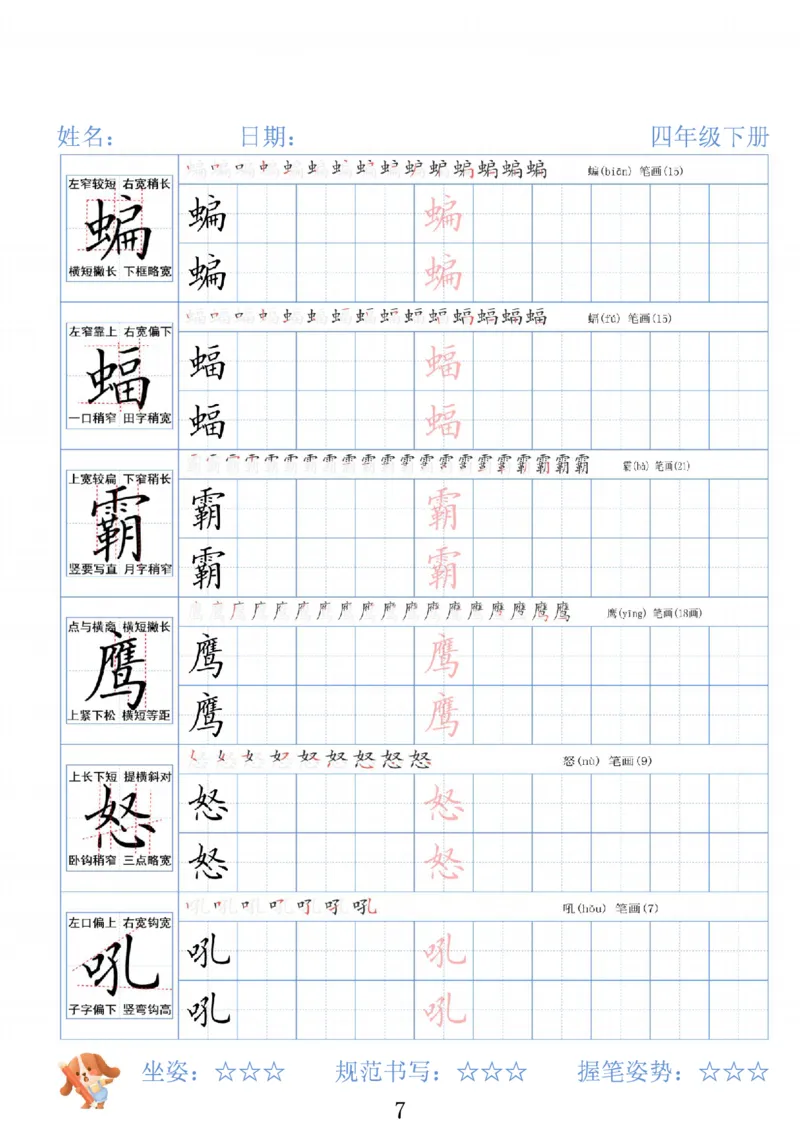 姓名： 日期： 四年级下册
左窄较短 右宽稍长
蝙
横短撇长 下框略宽
蝙(biān) 笔画(15)
蝙 蝙
蝙 蝙
左窄靠上 右宽偏下
蝠
一口稍窄 田字稍宽
蝠(fú) 笔画(15)
蝠 蝠
蝠 蝠
上宽较扁 下窄稍长
霸
竖要写直 月字稍窄
霸(bà) 笔画(21)
霸 霸
霸 霸
点与横离 横短撇长
鹰
上紧下松 横短等距
鹰(yīng) 笔画(18画)
鹰 鹰
鹰 鹰
上长下短 提横斜对
怒
卧钩稍窄 三点略宽
怒(nù) 笔画(9)
怒 怒
怒 怒
左口偏上 右宽钩宽
吼
子字偏下 竖弯钩高
吼(hǒu) 笔画(7)
吼 吼
吼 吼
坐姿：☆☆☆ 规范书写：☆☆☆ 握笔姿势：☆☆☆
7